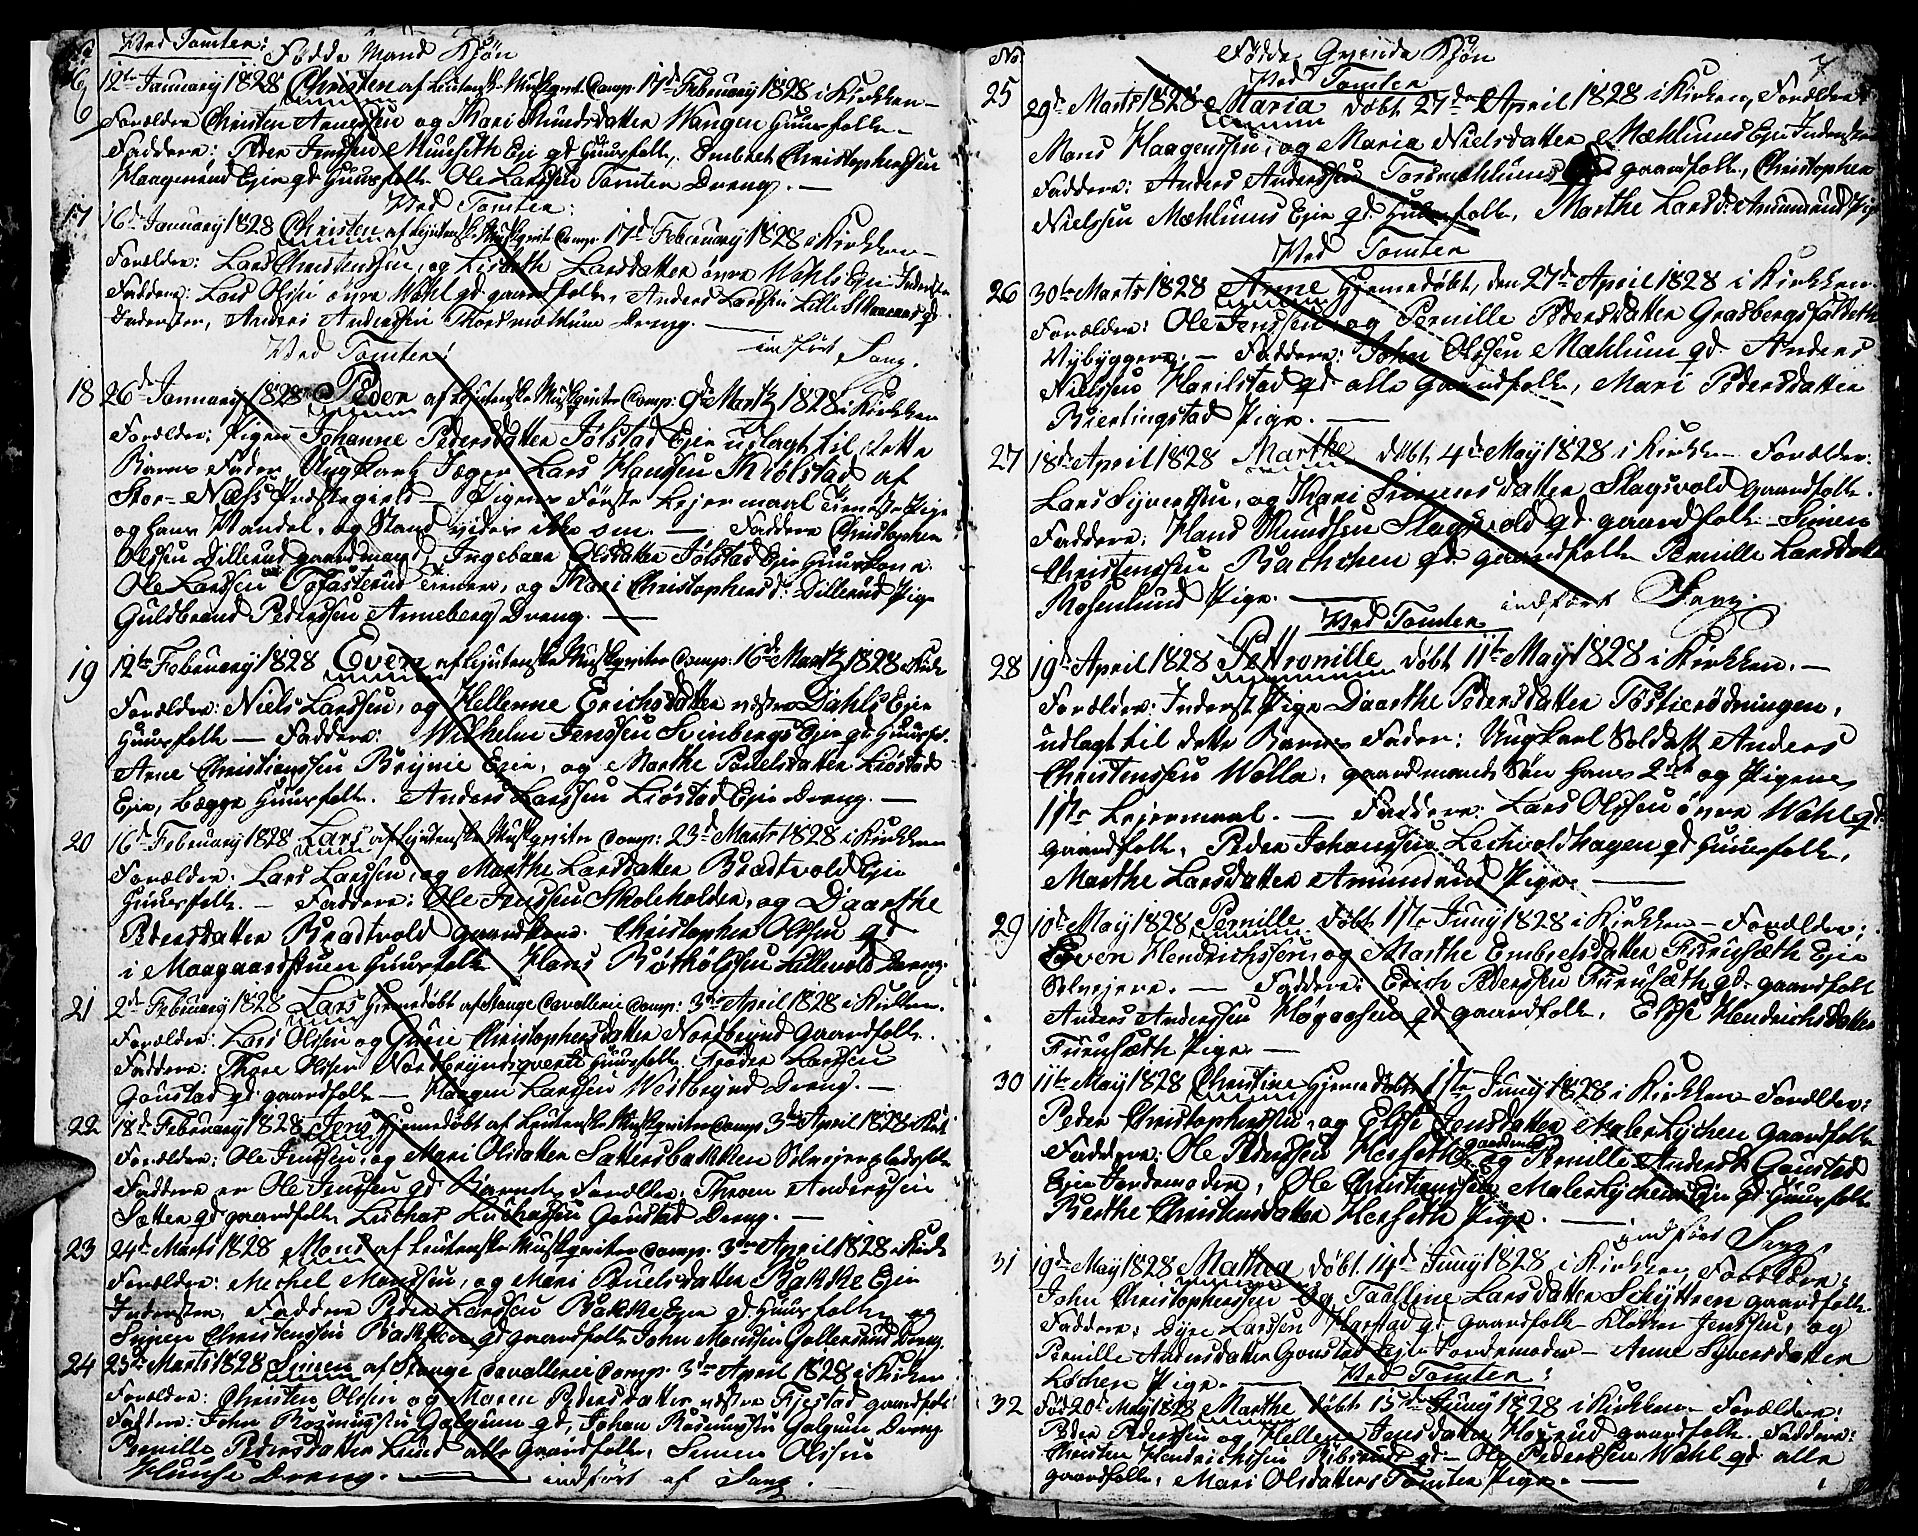 Ved Tomten: Fødde Mand Kjøn
16 12te January 1828 Christen af Leutenske Muskqvet Comp. 17de February 1828 i Kirken
Forældre Christen Arnessen og Kari Mundsdatter Wangen Huusfolk
Faddere: Peder Jenssen Muuseth Eje gd Huusfolk, Embret Christophersen
Haagenrud Eje gd Huusfolk Ole Larssen Tomten Dreng. —
Ved Tomten:
17 16de January 1828 Christen af Lejutenske Muskqvet Comp. 17de February 1828 i Kirken
Forældre: Lars Christenssen, og Lisbeth Larsdatter övre Wahls Eje Inderste
Faddere: Lars Olsen övre Wahl gd gaardfolk, Anders Larssen Lille gd
Inderster, Anders Andersen Thordmæhlum Dreng. —
Ved Tomten! indført Sang.
18 26de January 1828 Peder af Lejutenske Muskqveter Comp: 9de Martz 1828 i Kirken
Forældre: Pigen Johanne Pedersdatter Jölstad Eje udlagt til dette
Barns Fader Ungkarl Jæger Lars Hanssen Kiölstad af
Stor-Næss Præstegield — Pigens Første Lejermaal tieneste Pige
og hans Handel, og Stand vides ikke om. — Faddere Christopher
Olssen Dillerud gaardmand, Ingebaar Olsdatter Jölstad Eje Huuskone
Ole Larssen Tofasterud tiener, og Kari Christophersd: Dillerud Pige
Guldbrand Pederssen Anneberg Dreng. —
19 12te February 1828 Even af Lejutenske Muskqveter Comp: 16de Martz 1828 i Kirk
Forældre: Niels Larssen, og Hellenne Erichsdatter vestre Dahls Eje
Huusfolk — Faddere: Wilhelm Jenssen Svinbergs Eje gd Huusfol.
Arne Christianssen Brynie Eje, og Marthe Povelsdatter Liøstad
Eje, begge Huusfolk. Anders Larssen Liøstad Eje Dreng. —
20 16de February 1828 Lars af Lejutenske Muskqveter Comp: 23de Marts 1828 i Kirken
Forældre: Lars Larssen, og Marthe Larsdatter Bradtvold Eje
Huusfolk. — Faddere: Ole Jenssen Skoleholder, og Daarthe
Pedersdatter Bradtvold gaardkone. Christopher Olssen gd
i Maagaardstuen Huusfolk Hans Lillevold Dreng.
21 2de February 1828 Lars Hjemedøbt af Stange Cavallerie Comp: 3die April 1828 i Kirken.
Forældre: Lars Olssen og Gurie Christophersdatter Nordbrynd Gaardfolk.
Faddere: Thore Olssen Nordbrynd Huusfolk, Peder Larssen
Goustad gd gaardfolk — Haagen Larssen Westbrynd Dreng. —
22 18de February 1828 Jens Hjemedøbt af Leutenske Muskqveter Comp. 3die April 1828 i Kirk
Forældre: Ole Jenssen, og Mari Olsdatter Sættersbakken Selvejerpladsfolk
Faddere er Ole Jenssen gd Barnets Forældre: Throen Anderssen
Sætter gd gaardfolk Luchas Luchassen Goustad Dreng. —
23 24de Marts 1828 Mons af Leutenske Muskqveter Comp. 3die April 1828 i Kirk
Forældre: Mechel Monssen, og Mari Povelsdatter Bakke Eje
Inderster, Faddere Peder Larssen Bakke Eje gd Huusfolk og
Simen Christenssen Bakken gd gaardfolk John Monssen Gollerud Dreng.
24 25de Marts 1828 Simen af Stange Cavallerie Comp. 3die April 1828 i Kirken
Forældre: Christen Olssen og Maren Pedersdatter vestre Fjestad gaardfol.
Faddere: John Galgum gd, Johan Galgum Dreng
Pernille Pedersdatter Lund alle Gaardfolk, Simen Olssen
Dreng. — indført af Sang.
No Fødde Qvinde Kjøn 7
Ved Tomten
25 29de Marts 1828 Maria døbt 27de April 1828 i Kirken, Forældre
Mons Haagenssen, og Maria Nielsdatter Mæhlums Eje Inderster
Faddere: Anders Anderssen Tordmæhlums gaardfolk, Christopher
Nielssen Mæhlums Eje gd Huusfolk, Marthe Larsd: Amundrud Pige
Ved Tomten
26 30te Marts 1828 Anne Hjemedøbt, den 27de April 1828 i Kirken.
Forældre: Ole Jenssen, og Pernille Pedersdatter Grasbergsfaldeth
Nybyggere. — Faddere: John Olssen Mæhlum gd. Anders
Nielssen Harilstad gd alle gaardfolk, Mari Pedersdatter
Bierlingstad Pige. —
27 18de April 1828 Marthe døbt 4de May 1828 i Kirken Forældre:
Lars Syverssen, og Kari Simensdatter Slagsvold gaardfolk.
Faddere: Hans Mundsen Slagsvold gd gaardfolk Simen
Christenssen Bachen gd gaardfolk Pernille Larsdatter
Rosenlund Pige. — indført Sang.
Ved Tomten
28 19de April 1828 Petronille døbt 11te May 1828 i Kirken. —
Forældre: Inderst Pige Daarthe Pedersdatter Tostierødningen,
udlagt til dette Barns Fader: Ungkarl Soldatt Anders
Christenssen Wolla, gaardmands Søn hans 2det og Pigens
1ste Lejermaal. — Faddere: Lars Olssen övre Wahl gd
gaardfolk, Peder Johanssen Lechvoldhagen gd Huusfolk,
Marthe Larsdatter Amundrud Pige. —
29 10de May 1828 Pernille døbt 1ste Juny 1828 i Kirken — Forældre:
Even Hendrichssen, og Marthe Embretsdatter Furusæth Eje
Selvejere. — Faddere: Erich Pederssen Furusæth gd gaardfolk
Anders Anderssen Høgaasen gd gaardfolk, Elsse Hendrichsdatter
Furusæth Pige —
30 11te May 1828 Christine Hjemedøbt 1ste Juny 1828 i Kirken Forældre:
Peder Christophersen, og Elsse Jensdatter Malerlychen Gaardfolk
Faddere: Ole Pederssen Herseth gaardmand og Pernille Andersd: Goustad
Eje Jordemoder, Ole Christianssen Malerlychens Eje gd Huusfolk
Berthe Christensdatter Herseth Pige. — indført Sang
31 19de May 1828 Mathea døbt 14de Juny 1828 i Kirken, Forældre:
John Christophersen og Taalline Larsdatter Schyttren gaardfolk
Faddere: Dyre Larssen Harstad gd Gaardfolk Klokker Jenssen, og
Pernille Andersdatter Goustad Eje Jordemoder — Anne Syversdatter
Løchen Pige. — Ved Tomten:
32 Fød 20de May 1828 Marthe døbt 15de Juny 1828 i Kirken — Forældre:
Peder Pederssen og Hellene Jensdatter Hørrud gaardfolk. Faddere:
Christen Hendrichssen Ribsrud gd — Ole Pederssen Wahl gd alle
gaardfolk, Mari Olsdatter Tomten Pige. —